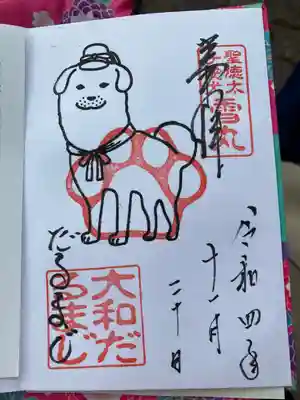 奉拝
聖徳太
雪丸
令和四年
十一月
二十日
だるまじ
大和だ
るまじ